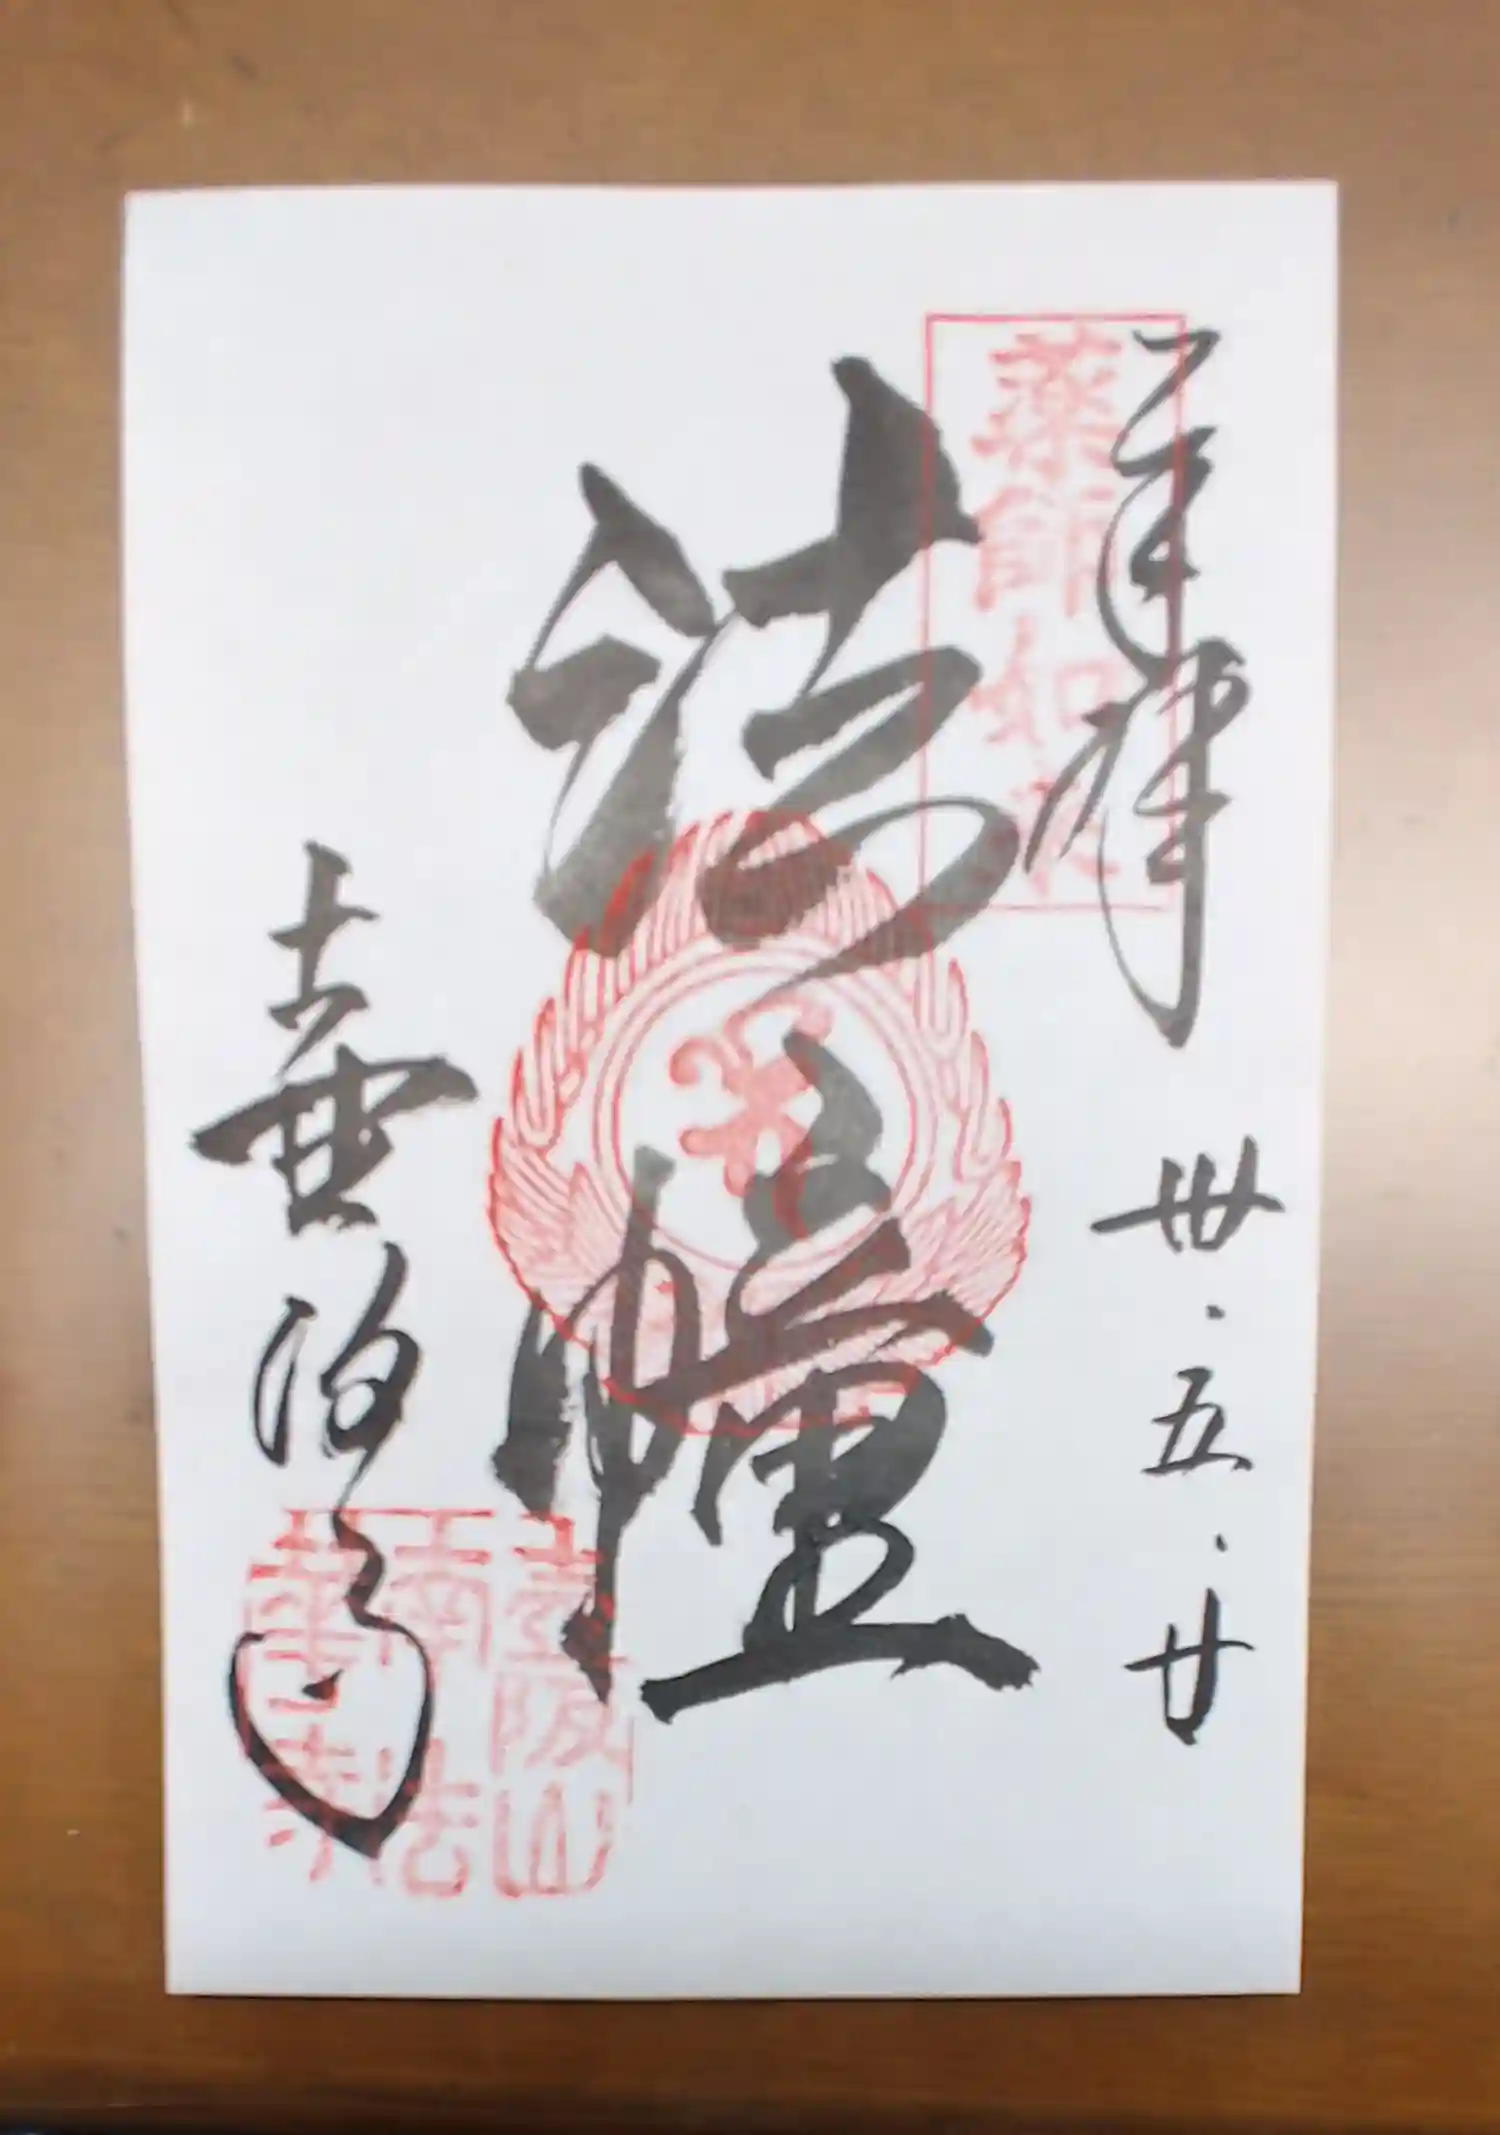 奉拝
卅・五・廿
薬師如来
法幢
壷阪寺
壷阪山
南法
華寺